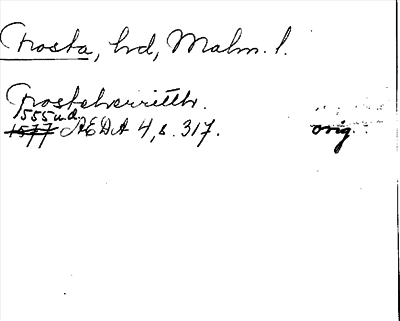 Frosta, hd, Malm. l.
Frosteherritth.
1555 u.d.
1577 ÆDA 4, s. 317. orig.